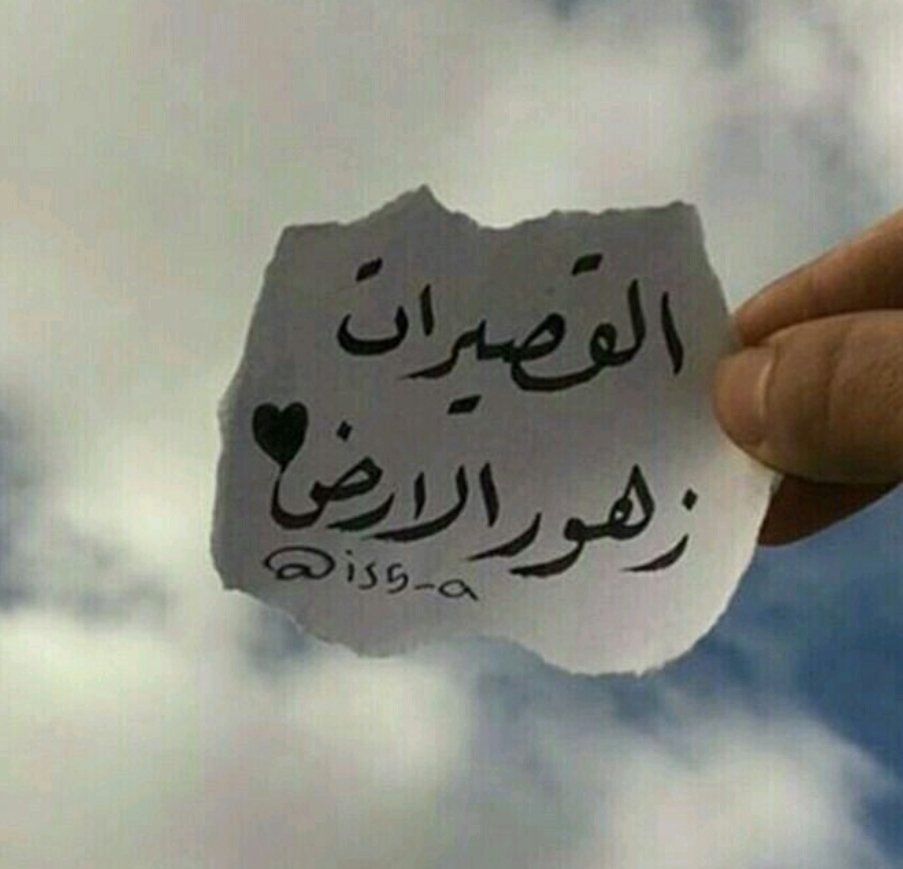 القصيرات
زهور الارض
@is5-a